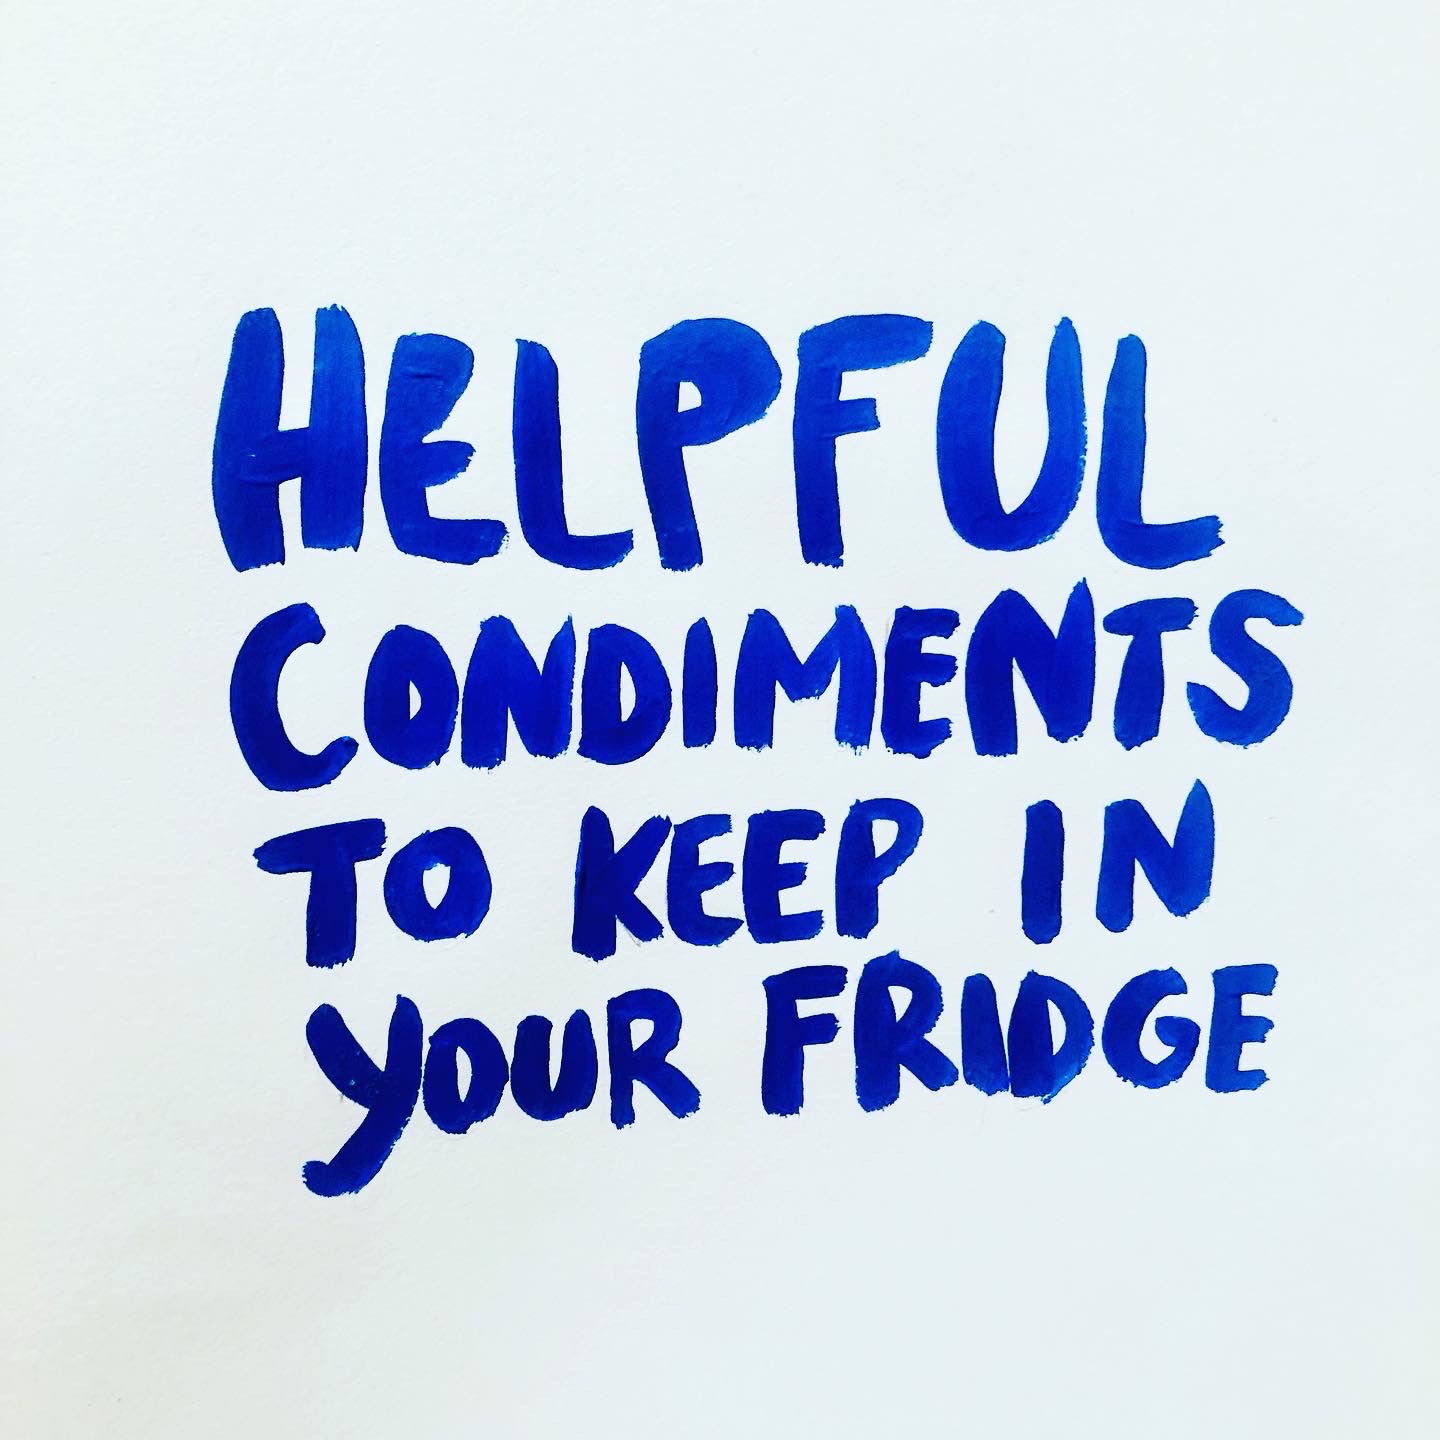 HELPFUL
CONDIMENTS
TO KEEP IN
YOUR FRIDGE